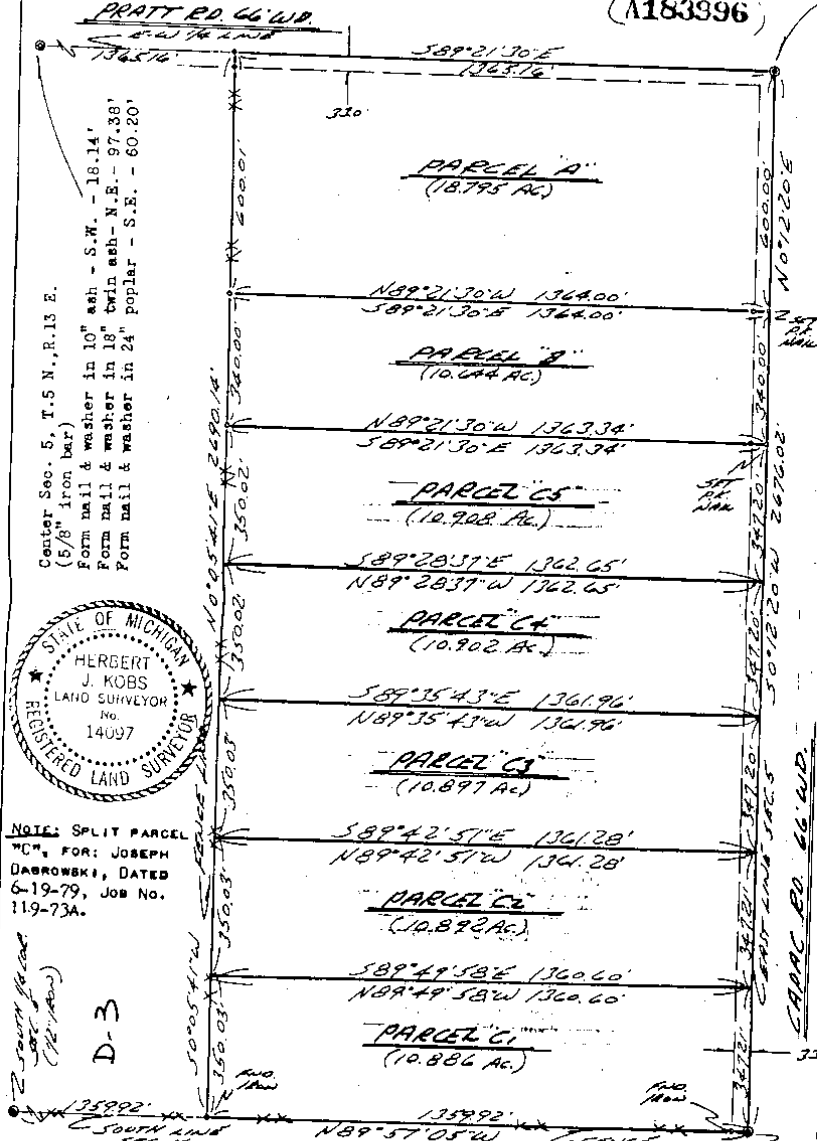 PRATT RD. 66' WD.
(A183996)
E-W 1/4 LINE
1365.16'
S89°21'30"E
1363.16'
33.0'
PARCEL "A"
(18.795 AC)
600.01'
600.00'
N0°12'20"E
N89°21'30"W 1364.00'
S89°21'30"E 1364.00'
SET
P.K.
NAIL
PARCEL "B"
(10.644 AC)
340.00'
340.00'
N89°21'30"W 1363.34'
S89°21'30"E 1363.34'
SET
P.K.
NAIL
PARCEL "C5"
(10.908 AC.)
350.02'
347.20'
N0°05'41"E 2690.14'
S0°12'20"W 2676.02'
S89°28'37"E 1362.65'
N89°28'37"W 1362.65'
PARCEL "C4"
(10.902 AC.)
350.02'
347.20'
S89°35'43"E 1361.96'
N89°35'43"W 1361.96'
PARCEL "C3"
(10.897 AC)
350.03'
347.20'
S89°42'51"E 1361.28'
N89°42'51"W 1361.28'
PARCEL "C2"
(10.892 AC)
350.03'
347.21'
S89°49'58"E 1360.60'
N89°49'58"W 1360.60'
PARCEL "C1"
(10.886 AC.)
350.03'
347.21'
S0°05'41"W
FENCE LINE
EAST LINE SEC. 5
CADAC RD. 66' WD.
33
FND.
IRON
FND.
IRON
1359.92'
1359.92'
SOUTH LINE
N89°57'05"W
FENCE
Center Sec. 5, T.5 N., R.13 E.
(5/8" iron bar)
Form nail & washer in 10" ash - S.W. - 18.14'
Form nail & washer in 18" twin ash- N.E.- 97.38'
Form nail & washer in 24" poplar - S.E. - 60.20'
STATE OF MICHIGAN
HERBERT
J. KOBS
LAND SURVEYOR
No.
14097
REGISTERED LAND SURVEYOR
NOTE: SPLIT PARCEL
"C", FOR: JOSEPH
DABROWSKI, DATED
6-19-79, JOB NO.
119-73A.
SOUTH 1/4 COR.
SEC. 5
(1/2" IRON)
D-3